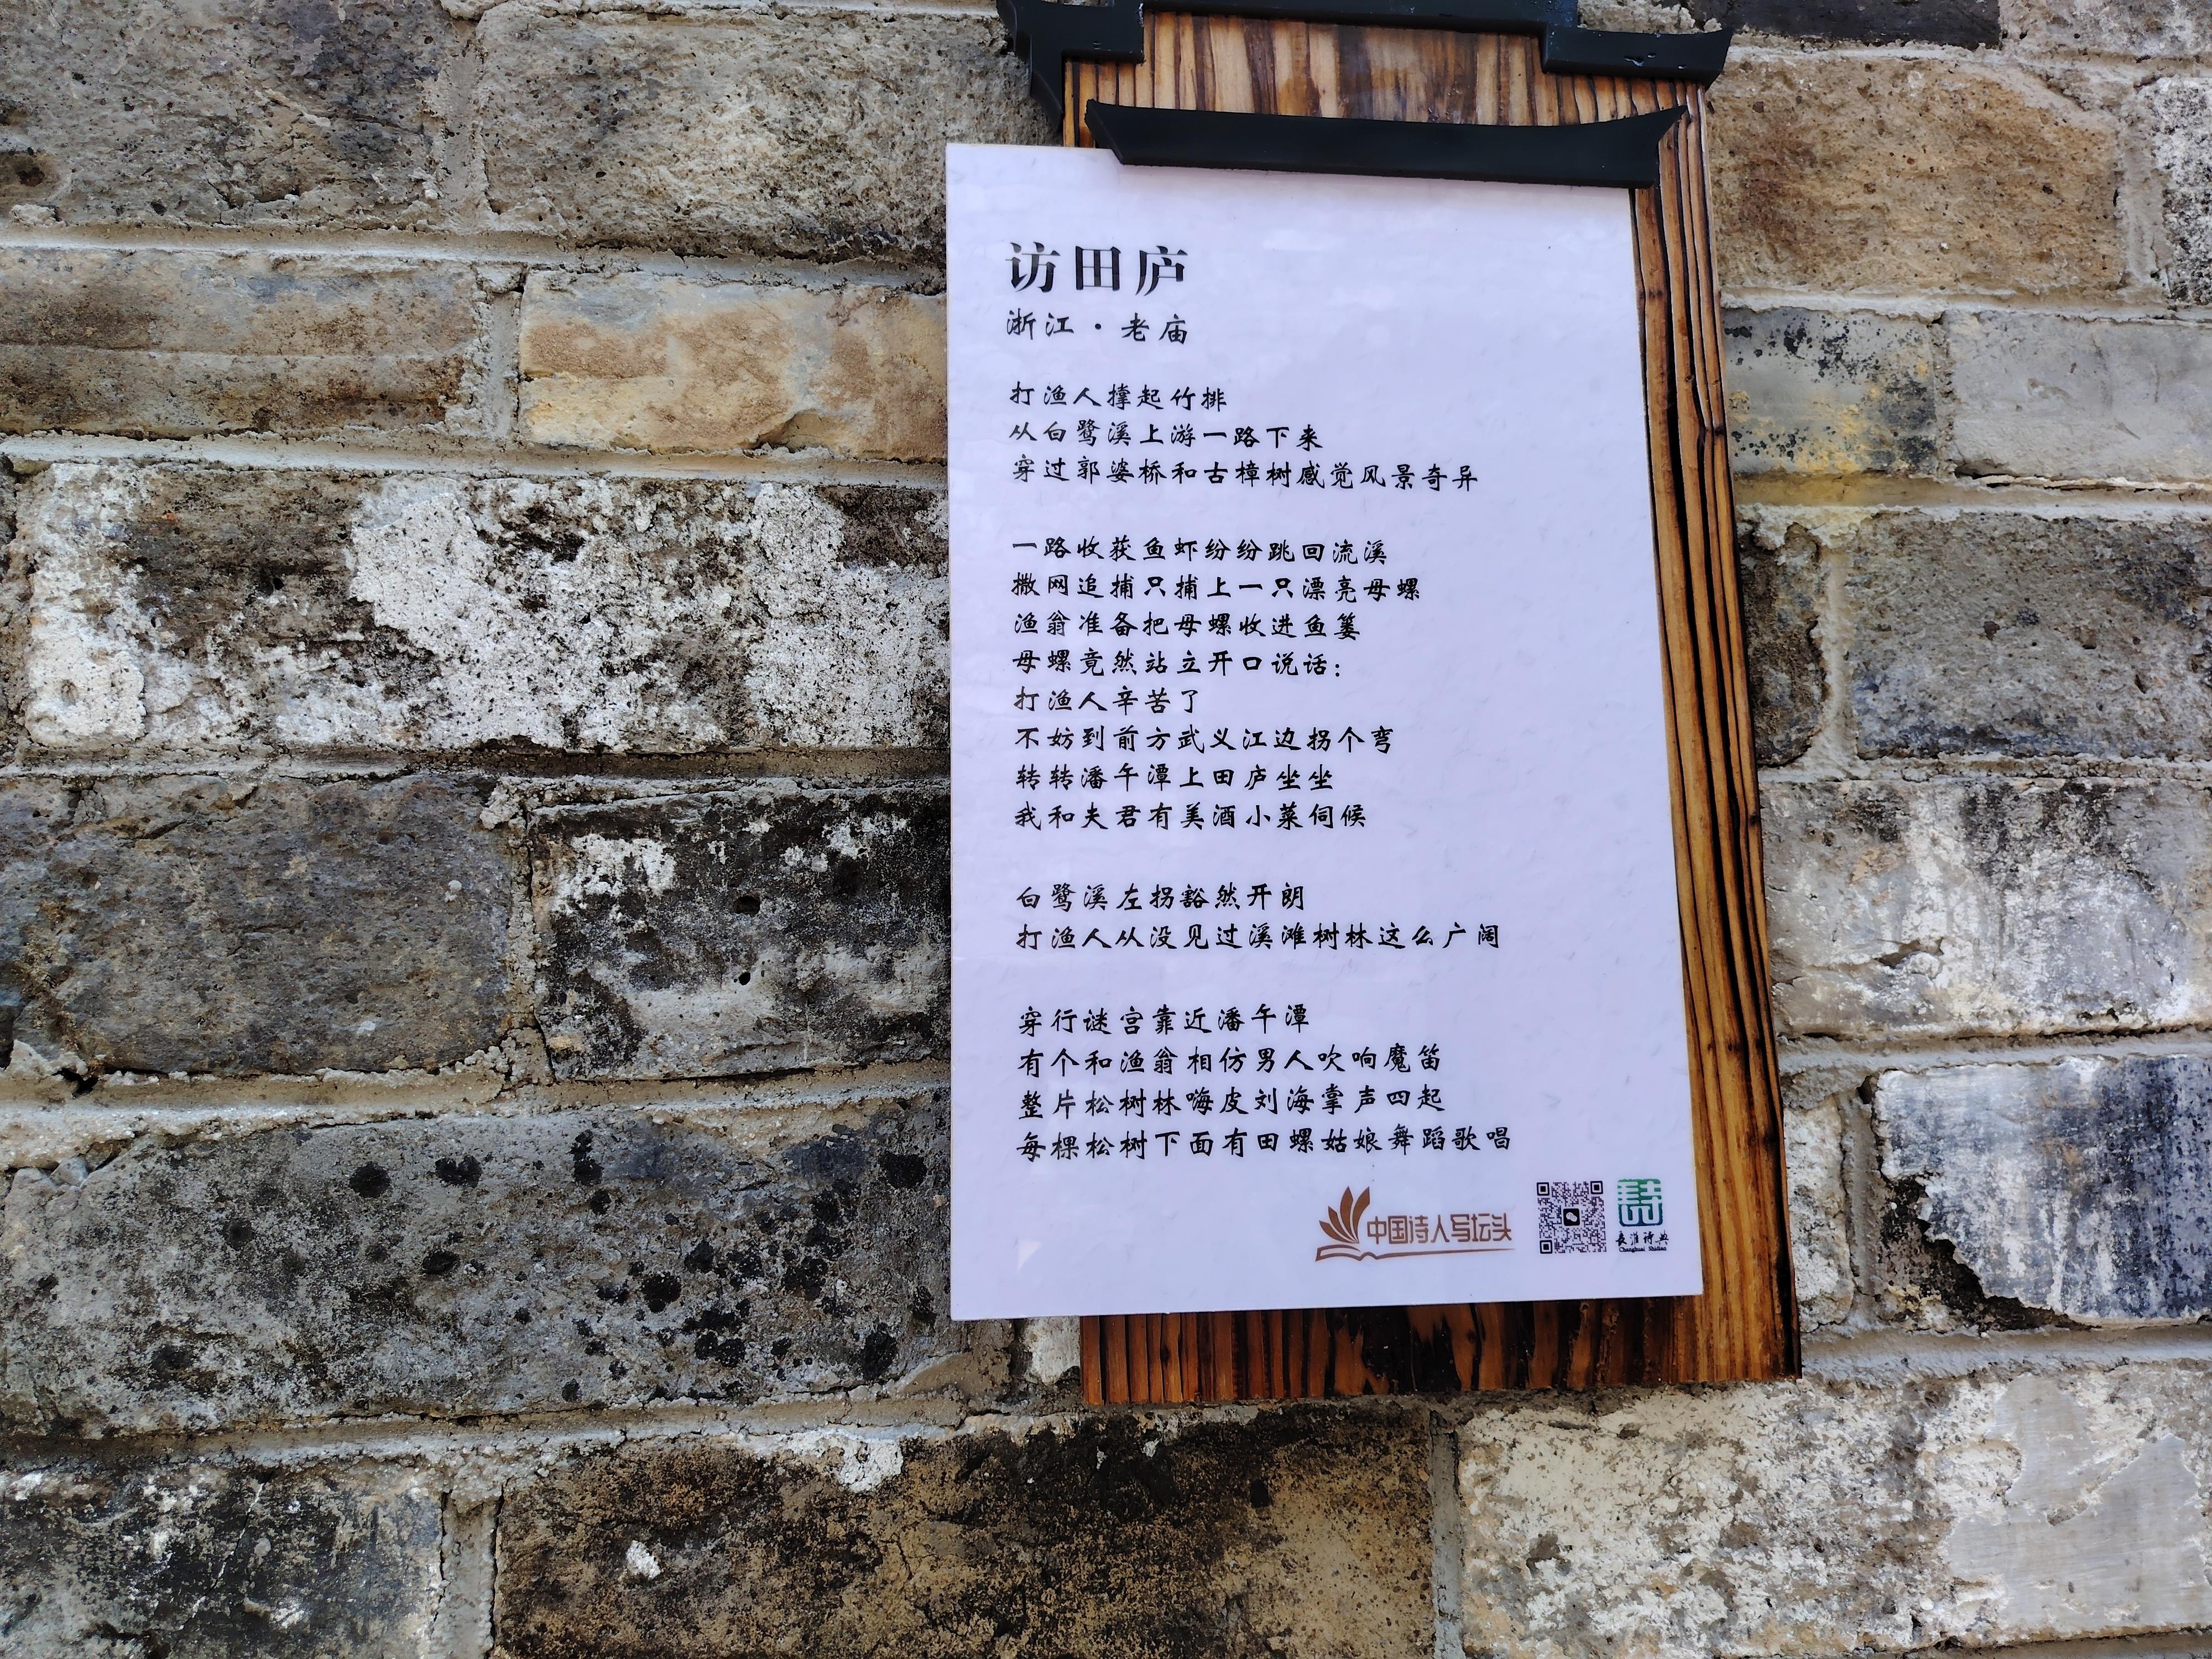 访田庐
浙江·老庙
打渔人撑起竹排
从白鹭溪上游一路下来
穿过郭婆桥和古樟树感觉风景奇异
一路收获鱼虾纷纷跳回流溪
撒网追捕只捕上一只漂亮母螺
渔翁准备把母螺收进鱼篓
母螺竟然站立开口说话：
打渔人辛苦了
不妨到前方武义江边拐个弯
转转潘午潭上田庐坐坐
我和夫君有美酒小菜伺候
白鹭溪左拐豁然开朗
打渔人从没见过溪滩树林这么广阔
穿行谜宫靠近潘午潭
有个和渔翁相仿男人吹响魔笛
整片松树林嗨皮刘海掌声四起
每棵松树下面有田螺姑娘舞蹈歌唱
中国诗人写坛头
诗
长淮诗典
Changhuai Shidian